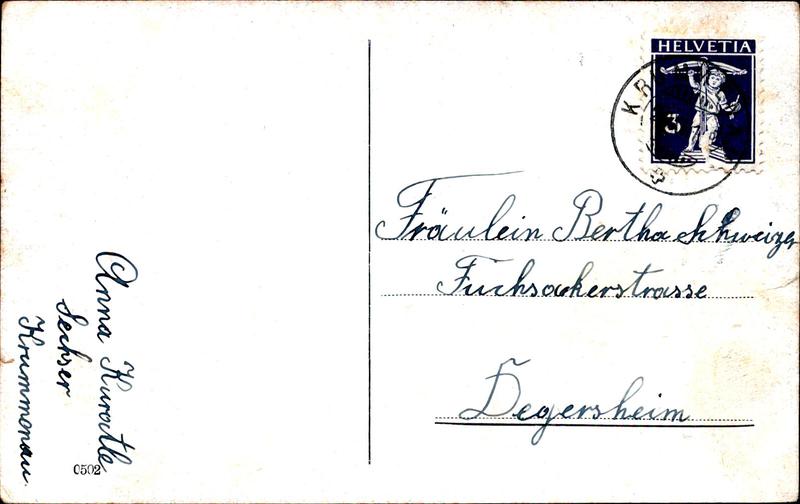 HELVETIA
3
KR
Fräulein Bertha Schweizer
Fuchsackerstrasse
Degersheim
Anna Kuratle
Sechser
Krummenau.
0502